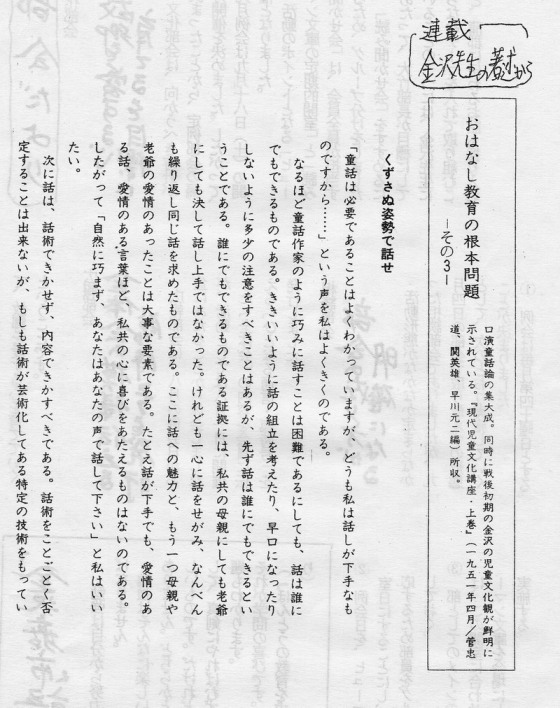 連載
金沢先生の著述から
おはなし教育の根本問題
―その3―
口演童話論の集大成。同時に戦後初期の金沢の児童文化観が鮮明に
示されている。『現代児童文化講座・上巻』（一九五一年四月／菅忠
道、関英雄、早川元二編）所収。
くずさぬ姿勢で話せ
「童話は必要であることはよくわかっていますが、どうも私は話しが下手なも
のですから……」という声を私はよくきくのである。
なるほど童話作家のように巧みに話すことは困難であるにしても、話は誰に
でもできるものである。ききいいように話の組立を考えたり、早口になったり
しないように多少の注意をすべきことはあるが、先ず話は誰にでもできるとい
うことである。誰にでもできるものである証拠には、私共の母親にしても老爺
にしても決して話し上手ではなかった。けれども一心に話をせがみ、なんべん
も繰り返し同じ話を求めたものである。ここに話への魅力と、もう一つ母親や
老爺の愛情のあったことは大事な要素である。たとえ話が下手でも、愛情のあ
る話、愛情のある言葉ほど、私共の心に喜びをあたえるものはないのである。
したがって「自然に巧まず、あなたはあなたの声で話して下さい」と私はいい
たい。
次に話は、話術できかせず、内容できかすべきである。話術をことごとく否
定することは出来ないが、もしも話術が芸術化してある特定の技術をもってい